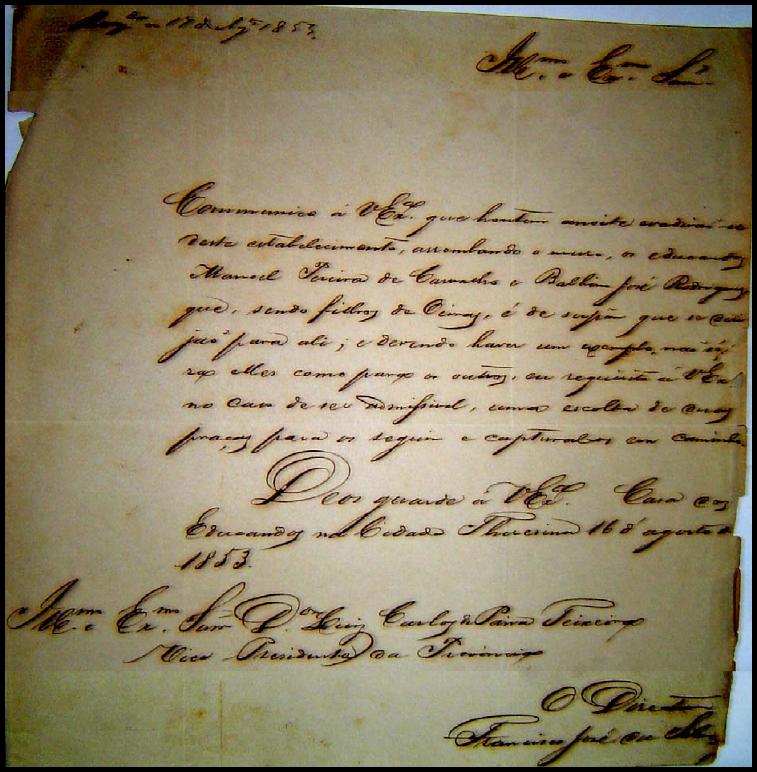 17 de Ag.to 1853.
Ill.mo e Ex.mo Snr.
Communico á V.Ex.ª que hontem anoite evadirão-se
deste estabelecimento, arrombando o muro, os educandos
Manoel Pereira de Carvalho e Balbino José Rodrigues
que, sendo filhos de Oeiras, é de supôr que se
jão para ali; e devendo haver um exemplo, não só
elles como para os outros, eu requisito á V.Ex.ª
no caso de ser admissivel, uma escolta de duas
praças para os seguir e captural-os em caminho.
Deos guarde á V.Ex.ª Casa dos
Educandos na Cidade Theresina 16 d'agosto de
1853.
Ill.mo e Ex.mo Snr. D.or Luiz Carlos de Paiva Teixeira
Vice Presidente da Provincia
O Director
Francisco José da